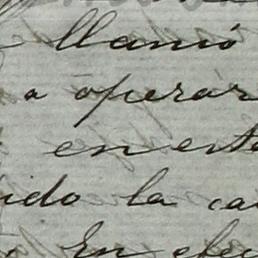 llamó
a operar
en esta
ido la ca
En efec